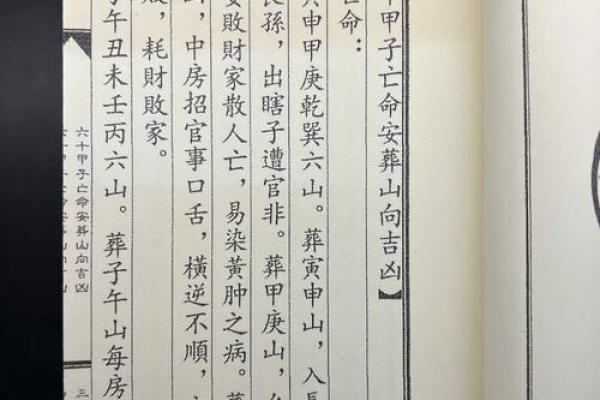 十甲子亡命安葬山向吉凶】
亡命：
寅申甲庚乾巽六山。葬寅申山，入長
長孫，出瞎子遭官非。葬甲庚山，
安敗財家散人亡，易染黃肿之病。葬
，中房招官事口舌，橫逆不順，
敗，耗財敗家。
子午丑未壬丙六山。葬子午山每房
六十甲子亡命安葬山向吉凶
三